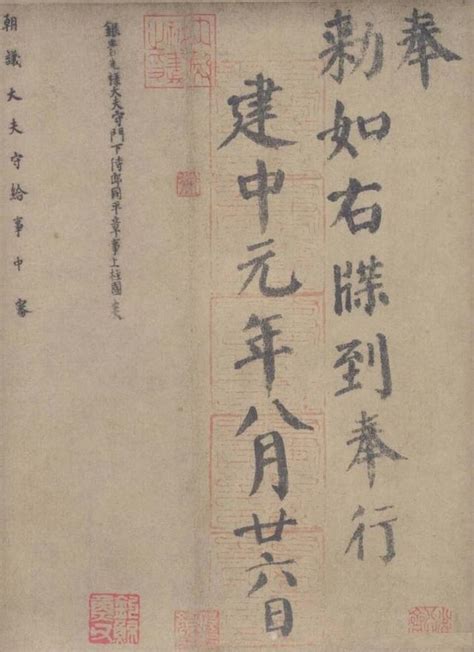 奉
勅如右牒到奉行
建中元年八月廿六日
銀青光禄大夫守門下侍郎同平章事上柱國炎
朝議大夫守給事中審